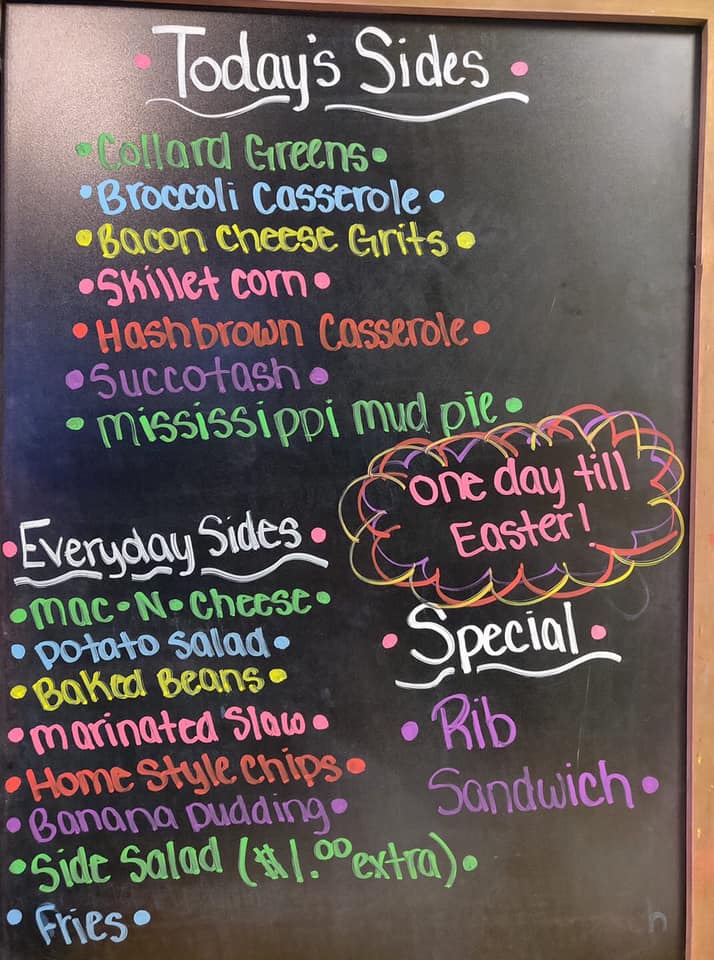 Today's Sides
Collard Greens
Broccoli Casserole
Bacon Cheese Grits
Skillet corn
Hashbrown Casserole
Succotash
mississippi mud pie
one day till
Easter!
Everyday Sides
mac•N•Cheese
potato salad
Baked Beans
marinated Slaw
Home Style Chips
Banana pudding
Side Salad ($1.00 extra)
Fries
Special
Rib
Sandwich
h